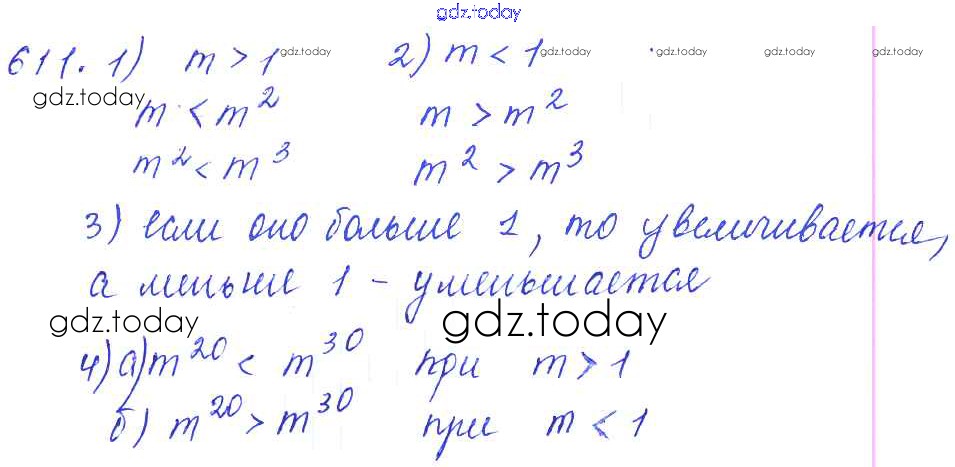 gdz.today
611. 1) m > 1 gdz.today 2) m < 1 gdz.today gdz.today gdz.today gdz.today
gdz.today
m < m² m > m²
m² < m³ m² > m³
3) если оно больше 1, то увеличивается,
а меньше 1 - уменьшается
gdz.today gdz.today
4) а) m²⁰ < m³⁰ при m > 1
б) m²⁰ > m³⁰ при m < 1